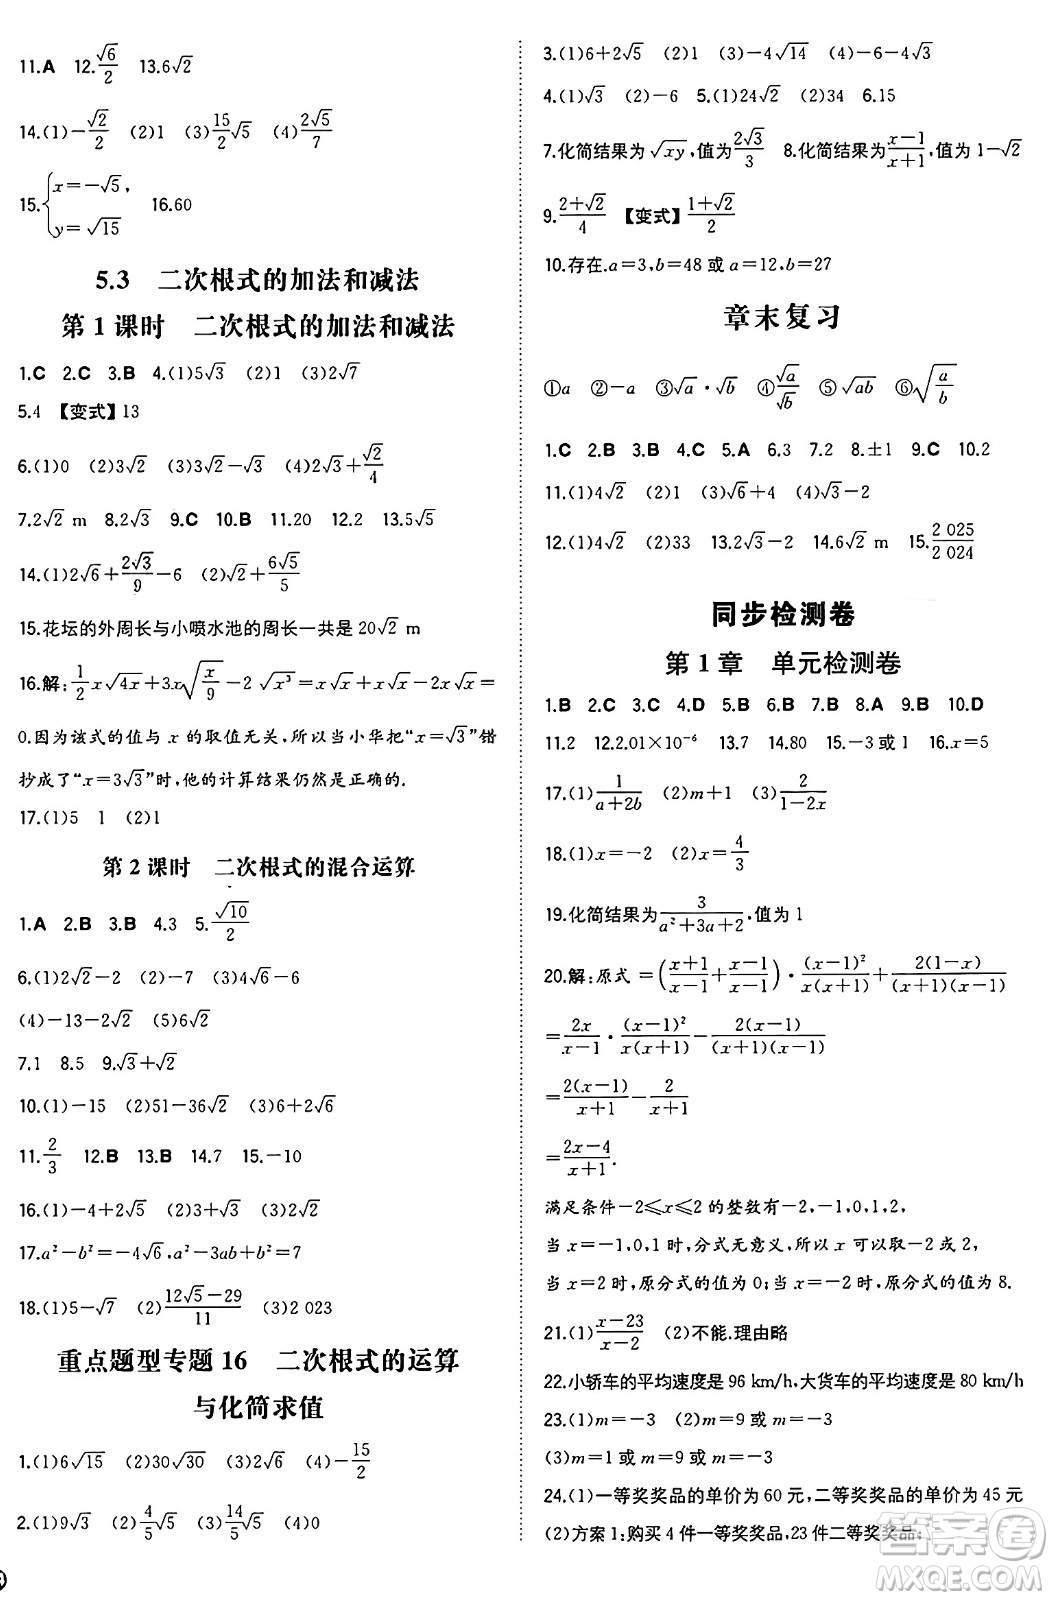 11.A 12.√6/2 13.6√2
14.(1)-√2/2 (2)1 (3)15/2√5 (4)2√5/7
15.{x=-√5, y=√15 16.60
5.3 二次根式的加法和减法
第1课时 二次根式的加法和减法
1.C 2.C 3.B 4.(1)5√3 (2)1 (3)2√7
5.4 【变式】13
6.(1)0 (2)3√2 (3)2√3-√3 (4)2√3+√2/4
7.2√2 m 8.2√3 9.C 10.B 11.20 12.2 13.5√5
14.(1)2√6+2√3/9-6 (2)√2+6√5/5
15.花坛的外周长与小喷水池的周长一共是20√2 m
16.解:1/2 x√4x+3x√(x/9)-2√x³=x√x+x√x-2x√x=
0.因为该式的值与x的取值无关,所以当小华把“x=√3”错
抄成了“x=3√3”时,他的计算结果仍然是正确的.
17.(1)5 1 (2)1
第2课时 二次根式的混合运算
1.A 2.B 3.B 4.3 5.√10/2
6.(1)2√2-2 (2)-7 (3)4√6-6
(4)-13-2√2 (5)6√2
7.1 8.5 9.√3+√2
10.(1)-15 (2)51-36√2 (3)6+2√6
11.2/3 12.B 13.B 14.7 15.-10
16.(1)-4+2√5 (2)2+√3 (3)2√6
17.a²-b²=-4√6,a²-3ab+b²=7
18.(1)5-√7 (2)(12√5-29)/11 (3)2 023
重点题型专题16 二次根式的运算
与化简求值
1.(1)6√15 (2)30√30 (3)2√6 (4)-15/2
2.(1)9√3 (2)4/5√5 (3)14/5√5 (4)0
3.(1)6+2√5 (2)1 (3)-4√14 (4)-6-4√3
4.(1)√3 (2)-6 5.(1)24√2 (2)34 6.15
7.化简结果为√xy,值为2√3/3 8.化简结果为(x-1)/(x+1),值为1-√2
9.(2+√2)/4 【变式】(1+√2)/2
10.存在.a=3,b=48或a=12,b=27
章末复习
①a ②-a ③√a·√b ④√a/√b ⑤√ab ⑥√(a/b)
1.C 2.B 3.B 4.C 5.A 6.3 7.2 8.±1 9.C 10.2
11.(1)4√2 (2)1 (3)√6+4 (4)√3-2
12.(1)4√2 (2)33 13.2√3-2 14.6√2 m 15.2 025/2 024
同步检测卷
第1章 单元检测卷
1.B 2.C 3.C 4.D 5.B 6.B 7.B 8.A 9.B 10.D
11.2 12.2.01×10⁻⁶ 13.7 14.80 15.-3或1 16.x=5
17.(1)1/(a+2b) (2)m+1 (3)2/(1-2x)
18.(1)x=-2 (2)x=4/3
19.化简结果为3/(a²+3a+2),值为1
20.解:原式=((x+1)/(x-1)+(x-1)/(x-1))·(x-1)²/(x(x+1))+2(1-x)/((x+1)(x-1))
=2x/(x-1)·(x-1)²/(x(x+1))-2(x-1)/((x+1)(x-1))
=2(x-1)/(x+1)-2/(x+1)
=(2x-4)/(x+1).
满足条件-2≤x≤2的整数有-2,-1,0,1,2,
当x=-1,0,1时,分式无意义,所以x可以取-2或2,
当x=2时,原分式的值为0;当x=-2时,原分式的值为8.
21.(1)(x-23)/(x-2) (2)不能.理由略
22.小轿车的平均速度是96 km/h,大货车的平均速度是80 km/h
23.(1)m=-3 (2)m=9或m=-3
(3)m=1或m=9或m=-3
24.(1)一等奖奖品的单价为60元,二等奖奖品的单价为45元
(2)方案1:购买4件一等奖奖品,23件二等奖奖品;
答案圈
MXQE.COM